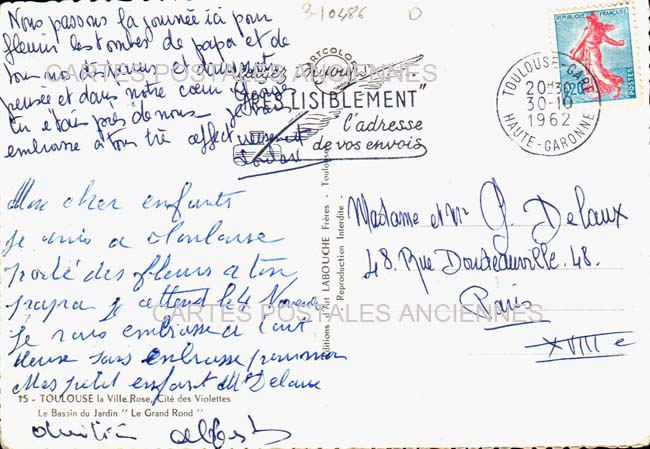 Nous passons la journée ici pour
fleurir les tombes de papa et de
tous nos
pensée et dans notre cœur
tu étais près de nous je
embrasse à tous très affectueusement
3-10486
CARTES POSTALES ANCIENNES
PORTCOLOM
"TRES LISIBLEMENT"
l'adresse
de vos envois
TOULOUSE-GARE
20H30
30-10
1962
HAUTE-GARONNE
REPUBLIQUE FRANÇAISE
0,20
POSTES
Mes cher enfants
je suis a Toulouse
porté des fleurs a ton
papa je attend le 4 Novembre
je vous embrasse a tout
deuse sans embrasse
Mes petit enfant Me Delaux
Editions d'Art LABOUCHE Frères - Toulouse
Reproduction Interdite
Madame et Mr G. Delaux
48. Rue Doudeauville. 48.
Paris
XVIIIe
CARTES POSTALES ANCIENNES
15 - TOULOUSE la Ville Rose, Cité des Violettes
Le Bassin du Jardin " Le Grand Rond "